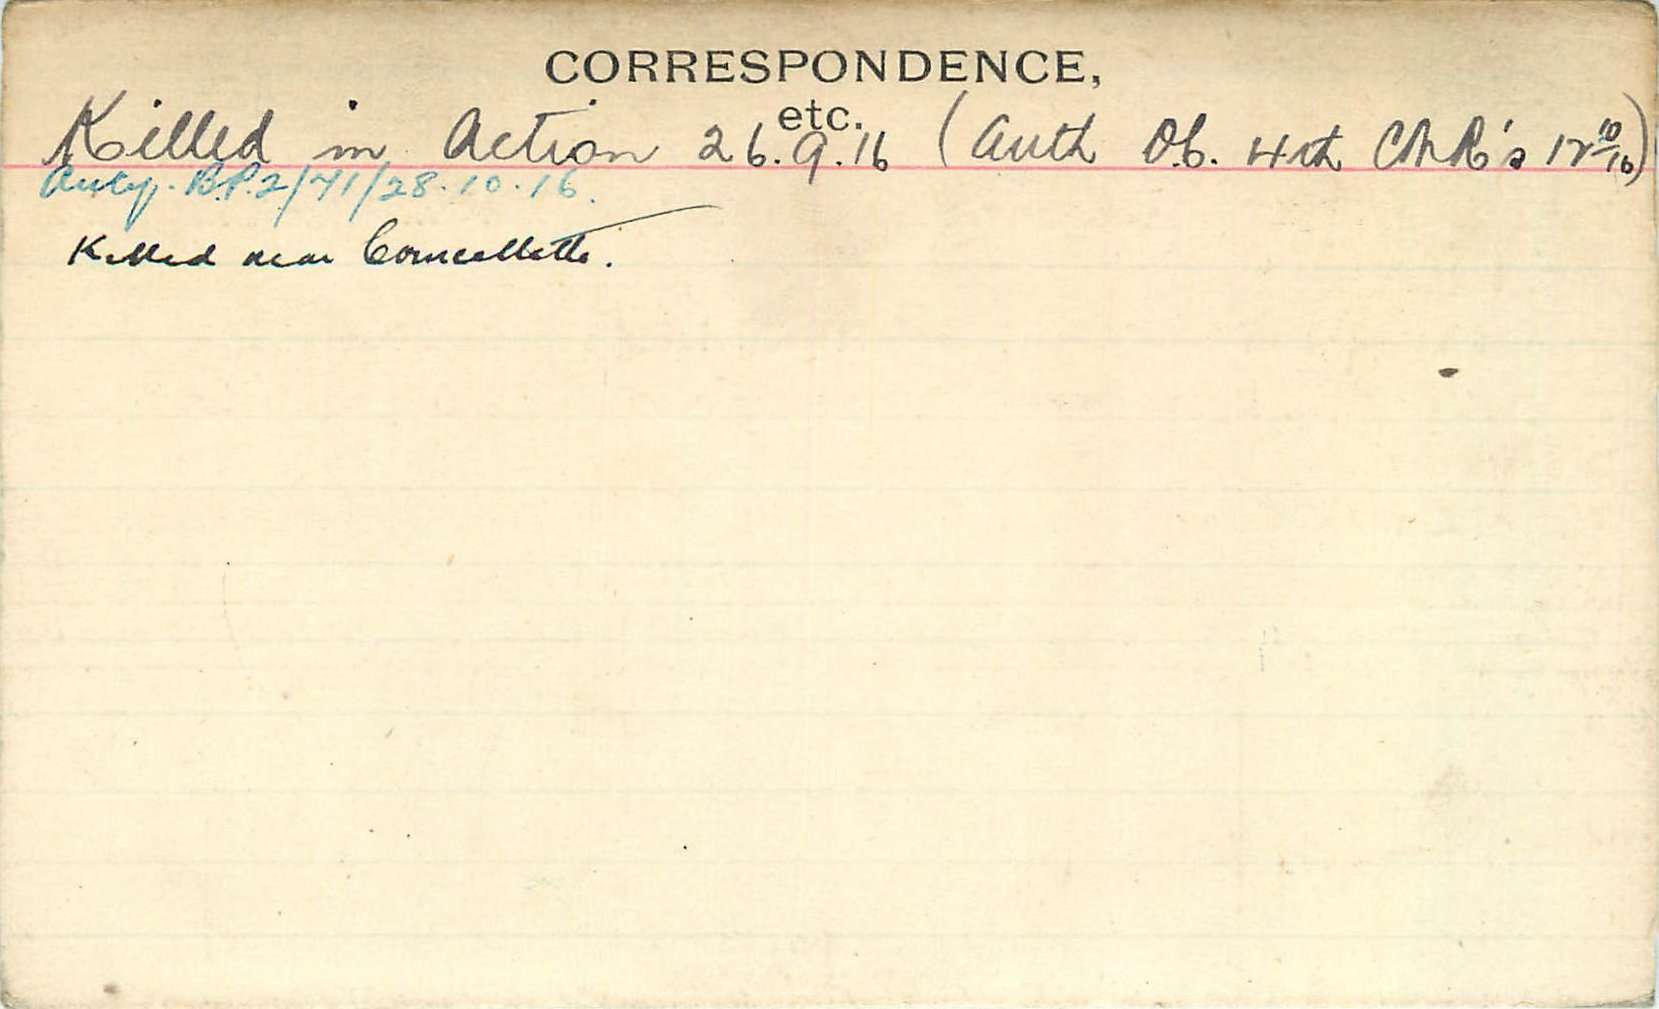 CORRESPONDENCE,
etc.
Killed in Action 26.9.16 (Auth O.C. 4th CMR's 12/10/16)
Auty. B.P.2/71/28.10.16.
Killed near Courcellette.